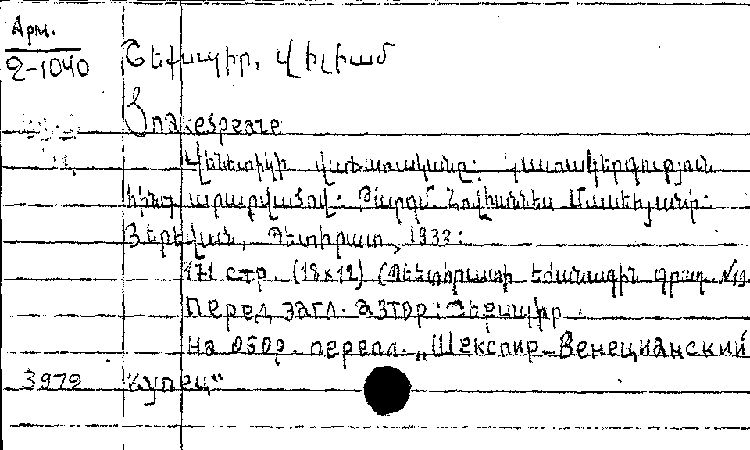 Арм.
2-1040
Շեքսպիր, Վիլիամ
Shakespeare
Վենետիկի վաճառականը: Կատակերգություն
հինգ արարվածով: Թարգմ. Հովհաննես Մասեհյանի:
Յերեվան, Պետհրատ, 1933:
171 стр. (18x12) (Պետհրատի եժանագին գրադ. №
Перед загл. автор: Շեքսպիր
На обор. перепл. „Шекспир-Венецианский
3972 купец“